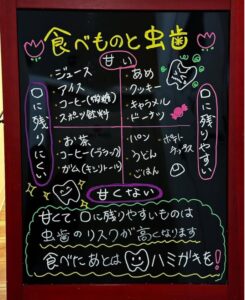 食べものと虫歯
甘い
・ジュース
・アイス
・コーヒー(微糖)
・スポーツ飲料
・あめ
・クッキー
・キャラメル
・ドーナツ
口に残りにくい
口に残りやすい
・お茶
・コーヒー(ブラック)
・ガム(キシリトール)
・パン
・うどん
・ごはん
・ポテトチップス
甘くない
甘くて、口に残りやすいものは
虫歯のリスクが高くなります
食べたあとはハミガキを!